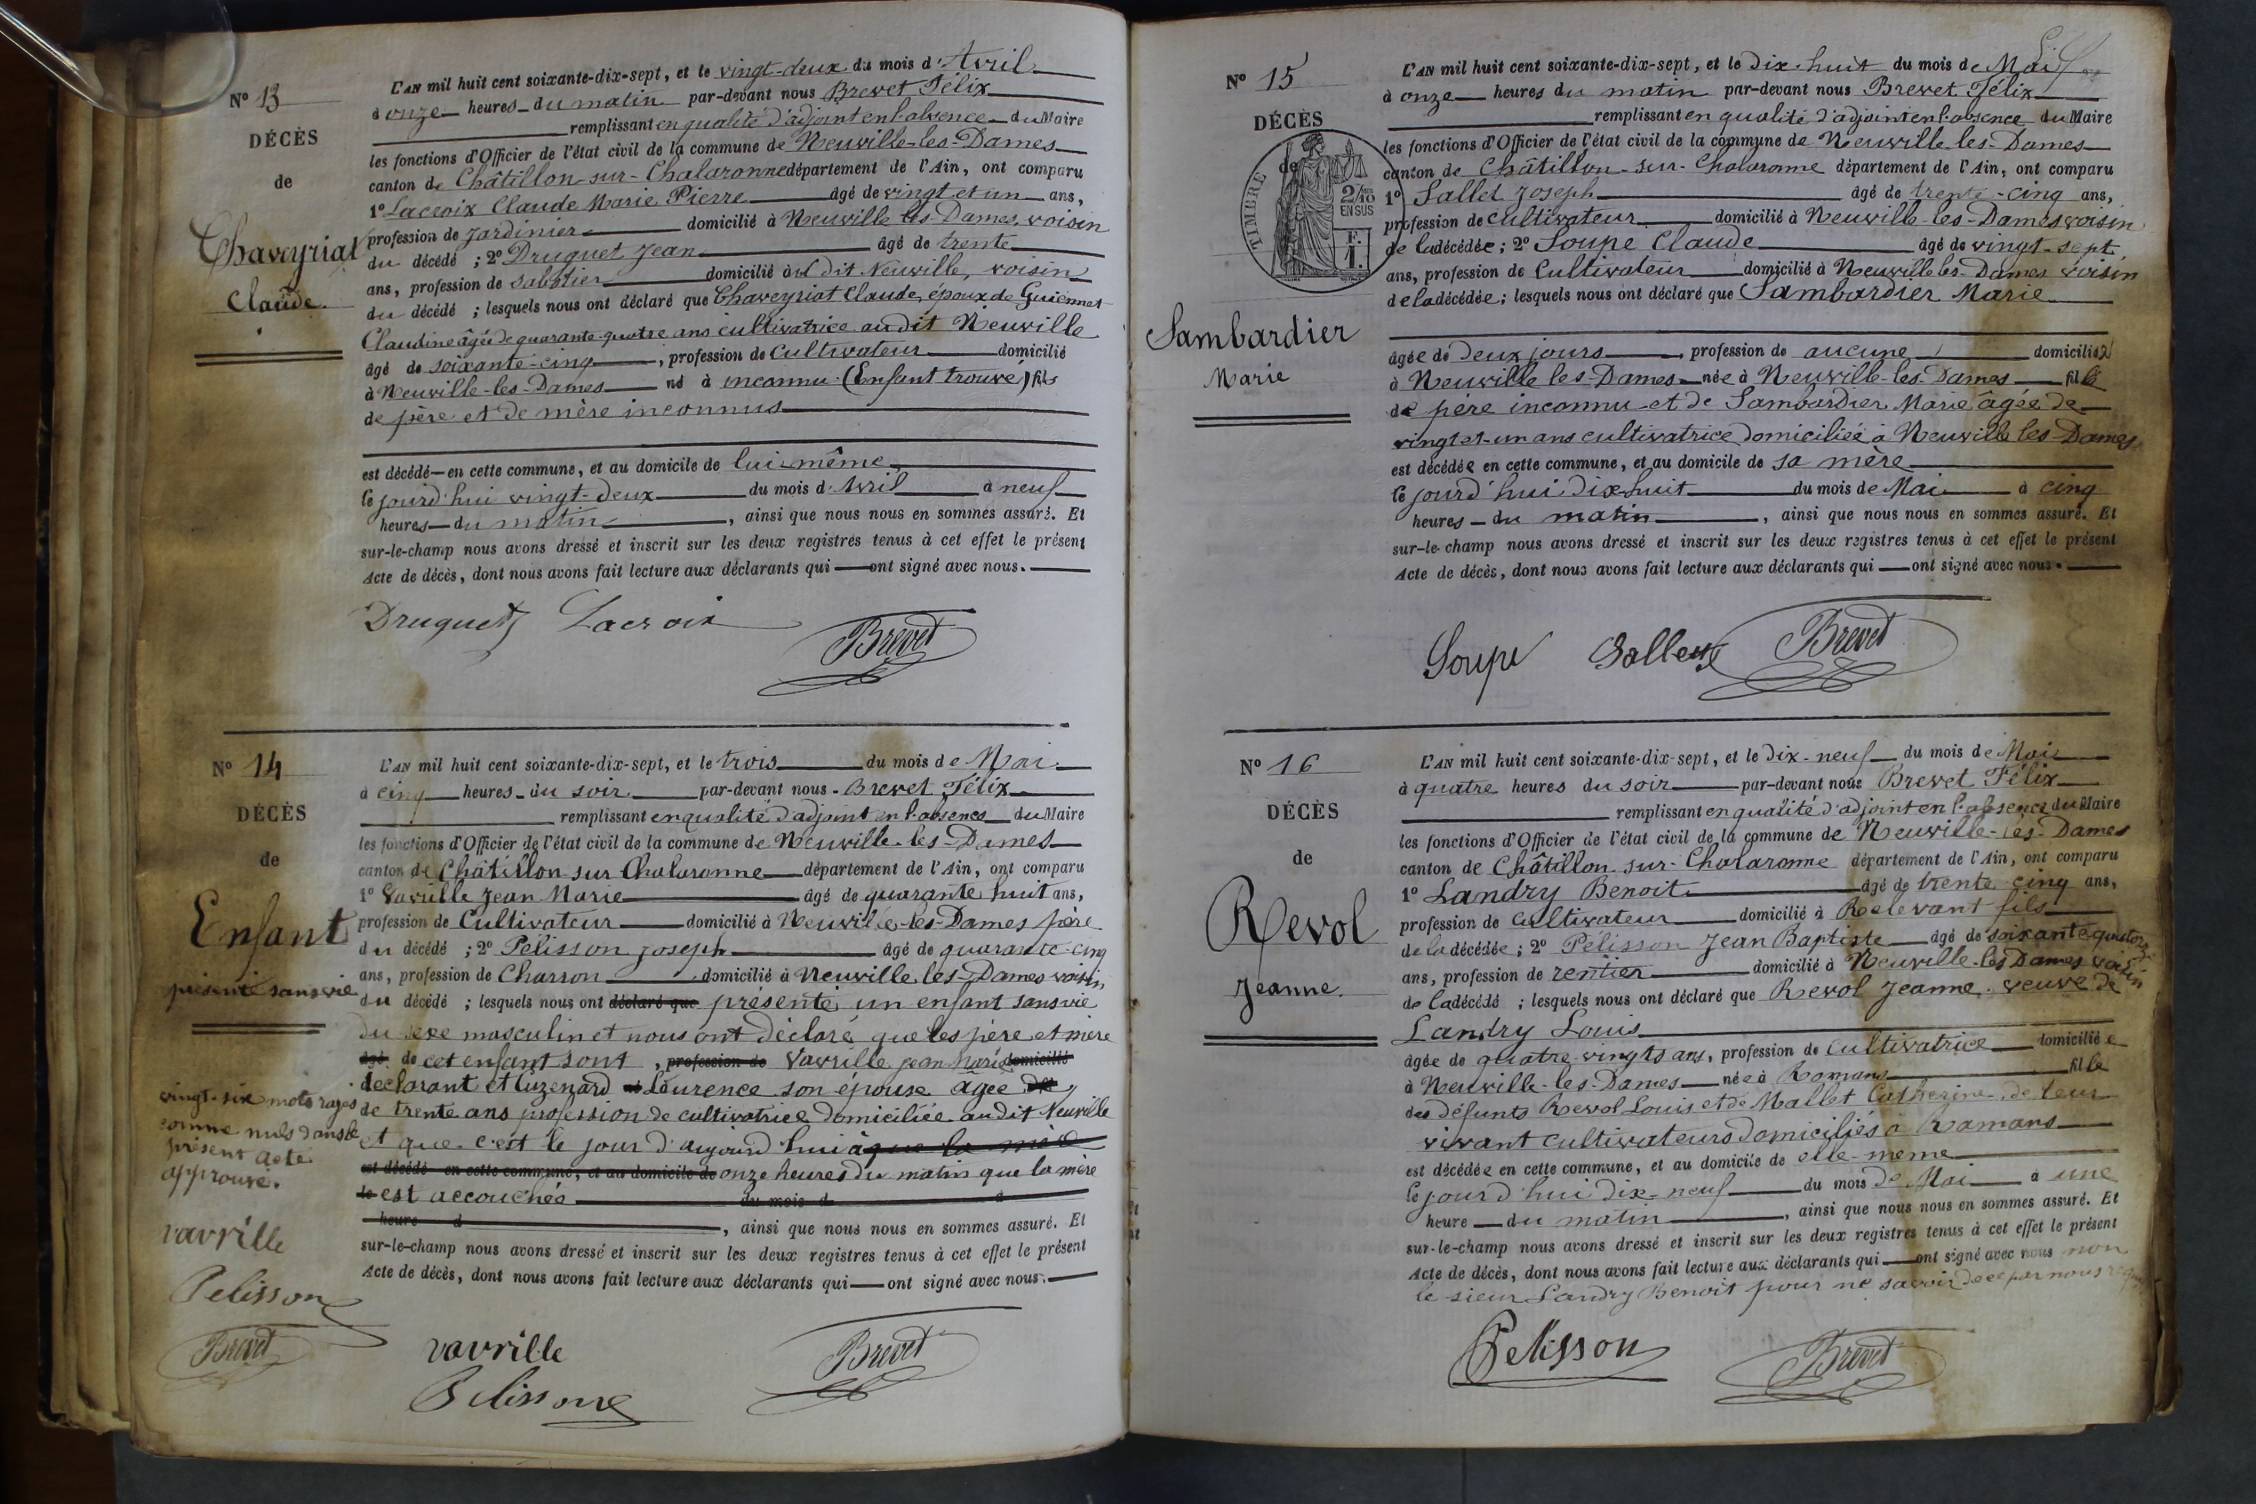 N° 13
DÉCÈS
de
Chaveyriat
Claude.
L'AN mil huit cent soixante-dix-sept, et le vingt-deux du mois d'Avril
à onze heures du matin par-devant nous Brevet Félix
remplissant en qualité d'adjoint en l'absence du Maire
les fonctions d'Officier de l'état civil de la commune de Neuville-les-Dames
canton de Châtillon-sur-Chalaronne département de l'Ain, ont comparu
1° Lacroix Claude Marie Pierre âgé de vingt et un ans,
profession de Jardinier domicilié à Neuville les Dames, voisin
du décédé ; 2° Druguet Jean âgé de trente
ans, profession de sabotier domicilié à dit Neuville, voisin
du décédé ; lesquels nous ont déclaré que Chaveyriat Claude, époux de Guiennet
Claudine âgée de quarante-quatre ans cultivatrice audit Neuville
âgé de soixante-cinq, profession de Cultivateur domicilié
à Neuville-les-Dames né à inconnu (Enfant trouvé) fils
de père et de mère inconnus
est décédé en cette commune, et au domicile de lui-même
le jourd'hui vingt-deux du mois d'Avril à neuf
heures du matin, ainsi que nous nous en sommes assuré. Et
sur-le-champ nous avons dressé et inscrit sur les deux registres tenus à cet effet le présent
Acte de décès, dont nous avons fait lecture aux déclarants qui ont signé avec nous.
Druguet Lacroix Brevet
N° 14
DÉCÈS
de
Enfant
présenté sans vie
L'AN mil huit cent soixante-dix-sept, et le trois du mois de Mai
à cinq heures du soir par-devant nous Brevet Félix
remplissant en qualité d'adjoint en l'absence du Maire
les fonctions d'Officier de l'état civil de la commune de Neuville-les-Dames
canton de Châtillon sur Chalaronne département de l'Ain, ont comparu
1° Vavrille Jean Marie âgé de quarante huit ans,
profession de Cultivateur domicilié à Neuville-les-Dames père
du décédé ; 2° Pelisson Joseph âgé de quarante-cinq
ans, profession de Charron domicilié à Neuville les Dames voisin
du décédé ; lesquels nous ont déclaré que présenté un enfant sans vie
du sexe masculin et nous ont déclaré que les père et mère
âgé de cet enfant sont, profession de Vavrille Jean Marie domicilié
déclarant et Cuzenard Laurence son épouse âgée
de trente ans profession de cultivatrice domiciliée audit Neuville
et que c'est le jour d'aujourd'hui à que la mère
est décédé en cette commune, et au domicile de onze heures du matin que la mère
le est accouchée du mois d à
heure d, ainsi que nous nous en sommes assuré. Et
sur-le-champ nous avons dressé et inscrit sur les deux registres tenus à cet effet le présent
Acte de décès, dont nous avons fait lecture aux déclarants qui ont signé avec nous.
vingt-six mots rayés
comme nuls dans le
présent acte
approuvé.
vavrille
Pelisson
Brevet
vavrille Brevet
Pelisson
N° 15
DÉCÈS
de
TIMBRE
2/10
EN SUS
F.
1.
Sambardier
Marie
L'AN mil huit cent soixante-dix-sept, et le dix-huit du mois de Mai
à onze heures du matin par-devant nous Brevet Félix
remplissant en qualité d'adjoint en l'absence du Maire
les fonctions d'Officier de l'état civil de la commune de Neuville-les-Dames
canton de Châtillon-sur-Chalaronne département de l'Ain, ont comparu
1° Sallet Joseph âgé de trente-cinq ans,
profession de cultivateur domicilié à Neuville-les-Dames voisin
de la décédée ; 2° Soupe Claude âgé de vingt-sept
ans, profession de Cultivateur domicilié à Neuville les-Dames voisin
de la décédée ; lesquels nous ont déclaré que Sambardier Marie
âgée de deux jours, profession de aucune domiciliée
à Neuville les-Dames née à Neuville-les-Dames fille
de père inconnu et de Sambardier Marie âgée de
vingt et-un ans cultivatrice domiciliée à Neuville les-Dames
est décédée en cette commune, et au domicile de sa mère
le jourd'hui dix-huit du mois de Mai à cinq
heures du matin, ainsi que nous nous en sommes assuré. Et
sur-le-champ nous avons dressé et inscrit sur les deux registres tenus à cet effet le présent
Acte de décès, dont nous avons fait lecture aux déclarants qui ont signé avec nous.
Soupe Sallet Brevet
N° 16
DÉCÈS
de
Revol
Jeanne.
L'AN mil huit cent soixante-dix-sept, et le dix-neuf du mois de Mai
à quatre heures du soir par-devant nous Brevet Félix
remplissant en qualité d'adjoint en l'absence du Maire
les fonctions d'Officier de l'état civil de la commune de Neuville-les-Dames
canton de Châtillon-sur-Chalaronne département de l'Ain, ont comparu
1° Landry Benoit âgé de trente cinq ans,
profession de cultivateur domicilié à Relevant fils
de la décédée ; 2° Pélisson Jean Baptiste âgé de soixante quatorze
ans, profession de rentier domicilié à Neuville-les Dames voisin
de la décédé ; lesquels nous ont déclaré que Revol Jeanne veuve de
Landry Louis
âgée de quatre-vingts ans, profession de Cultivatrice domiciliée
à Neuville-les-Dames née à Romans fille
des défunts Revol Louis et de Mallet Catherine de leur
vivant cultivateurs domiciliés à Romans
est décédée en cette commune, et au domicile de elle-même
le jourd'hui dix-neuf du mois de Mai à une
heure du matin, ainsi que nous nous en sommes assuré. Et
sur-le-champ nous avons dressé et inscrit sur les deux registres tenus à cet effet le présent
Acte de décès, dont nous avons fait lecture aux déclarants qui ont signé avec nous non
le sieur Landry Benoit pour ne savoir de ce par nous requis
Pelisson Brevet